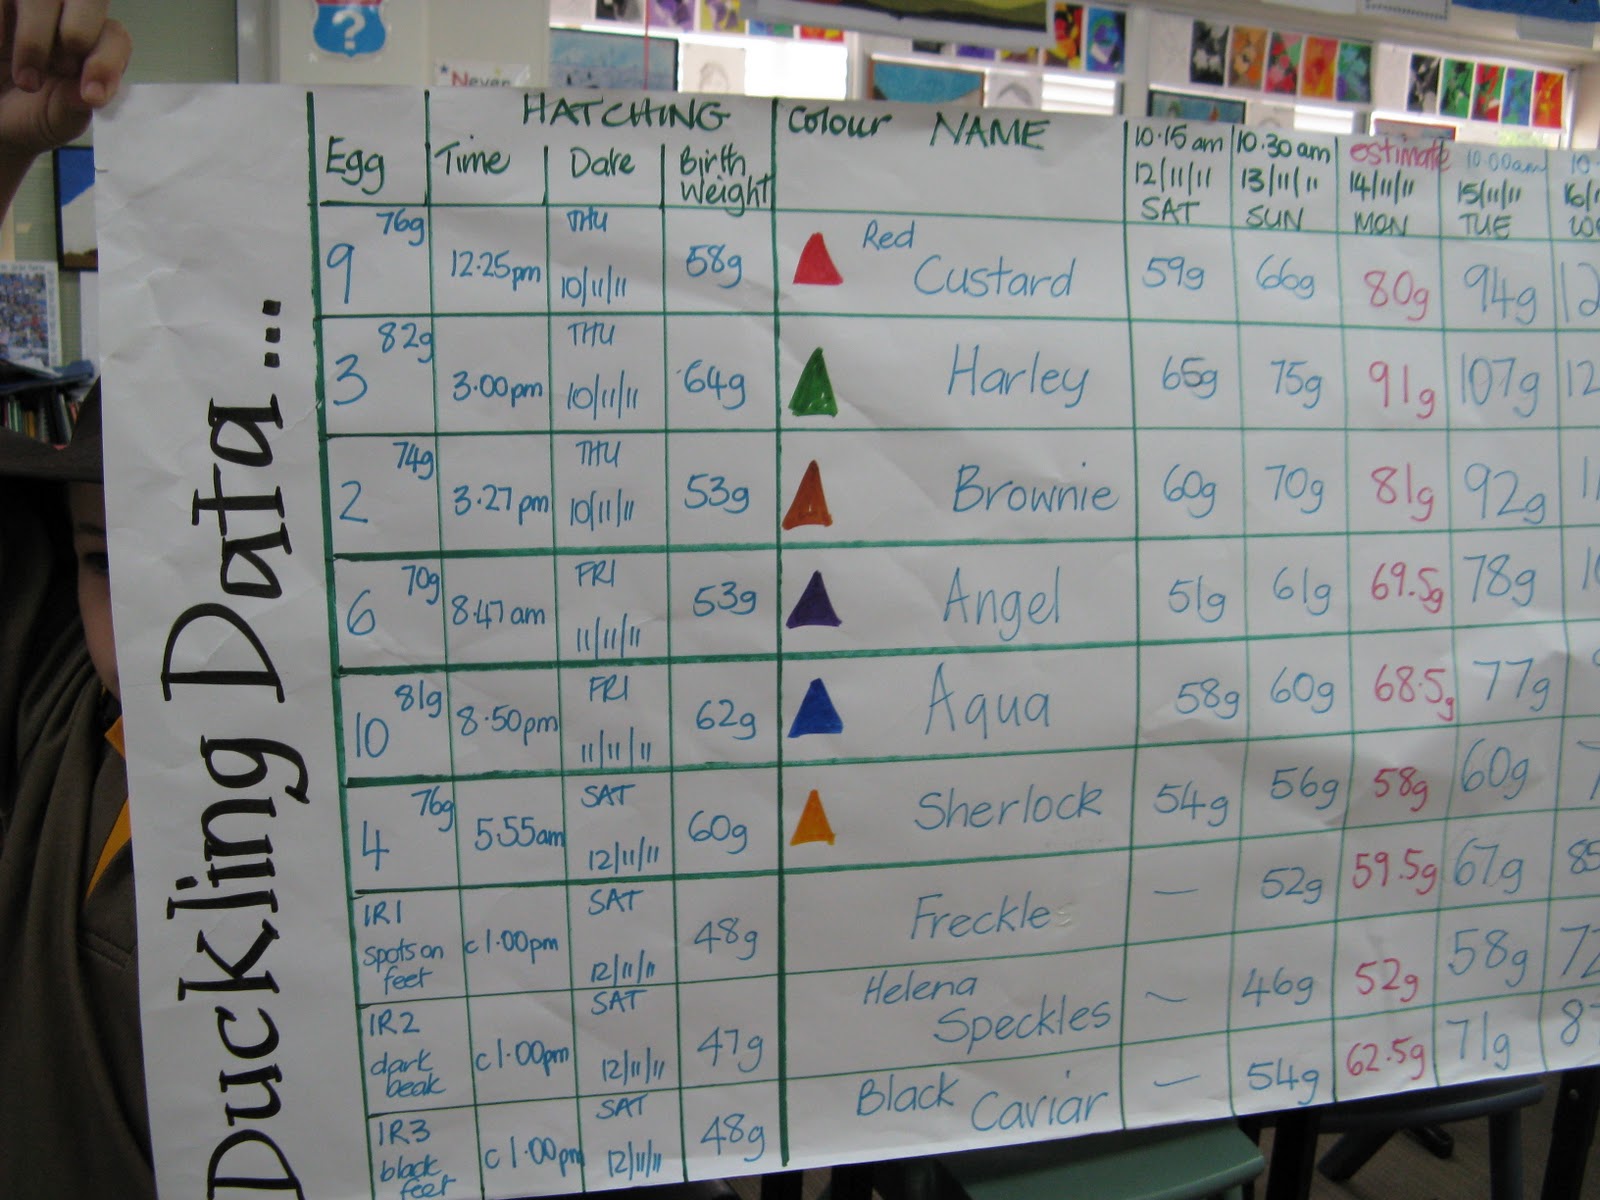 ?
Never
Duckling Data...
HATCHING
Egg Time Date Birth Weight Colour NAME 10.15 am 12/11/11 SAT 10.30 am 13/11/11 SUN estimate 14/11/11 MON 10.00am 15/11/11 TUE
9 76g 12.25pm THU 10/11/11 58g Red Custard 59g 66g 80g 94g
3 82g 3.00pm THU 10/11/11 64g Harley 65g 75g 91g 107g
2 74g 3.27pm THU 10/11/11 53g Brownie 60g 70g 81g 92g
6 70g 8.47am FRI 11/11/11 53g Angel 51g 61g 69.5g 78g
10 81g 8.50pm FRI 11/11/11 62g Aqua 58g 60g 68.5g 77g
4 76g 5.55am SAT 12/11/11 60g Sherlock 54g 56g 58g 60g
IR1 spots on feet c1.00pm SAT 12/11/11 48g Freckle — 52g 59.5g 67g 85
IR2 dark beak c1.00pm SAT 12/11/11 47g Helena Speckles — 46g 52g 58g 72
IR3 black feet c1.00pm SAT 12/11/11 48g Black Caviar — 54g 62.5g 71g